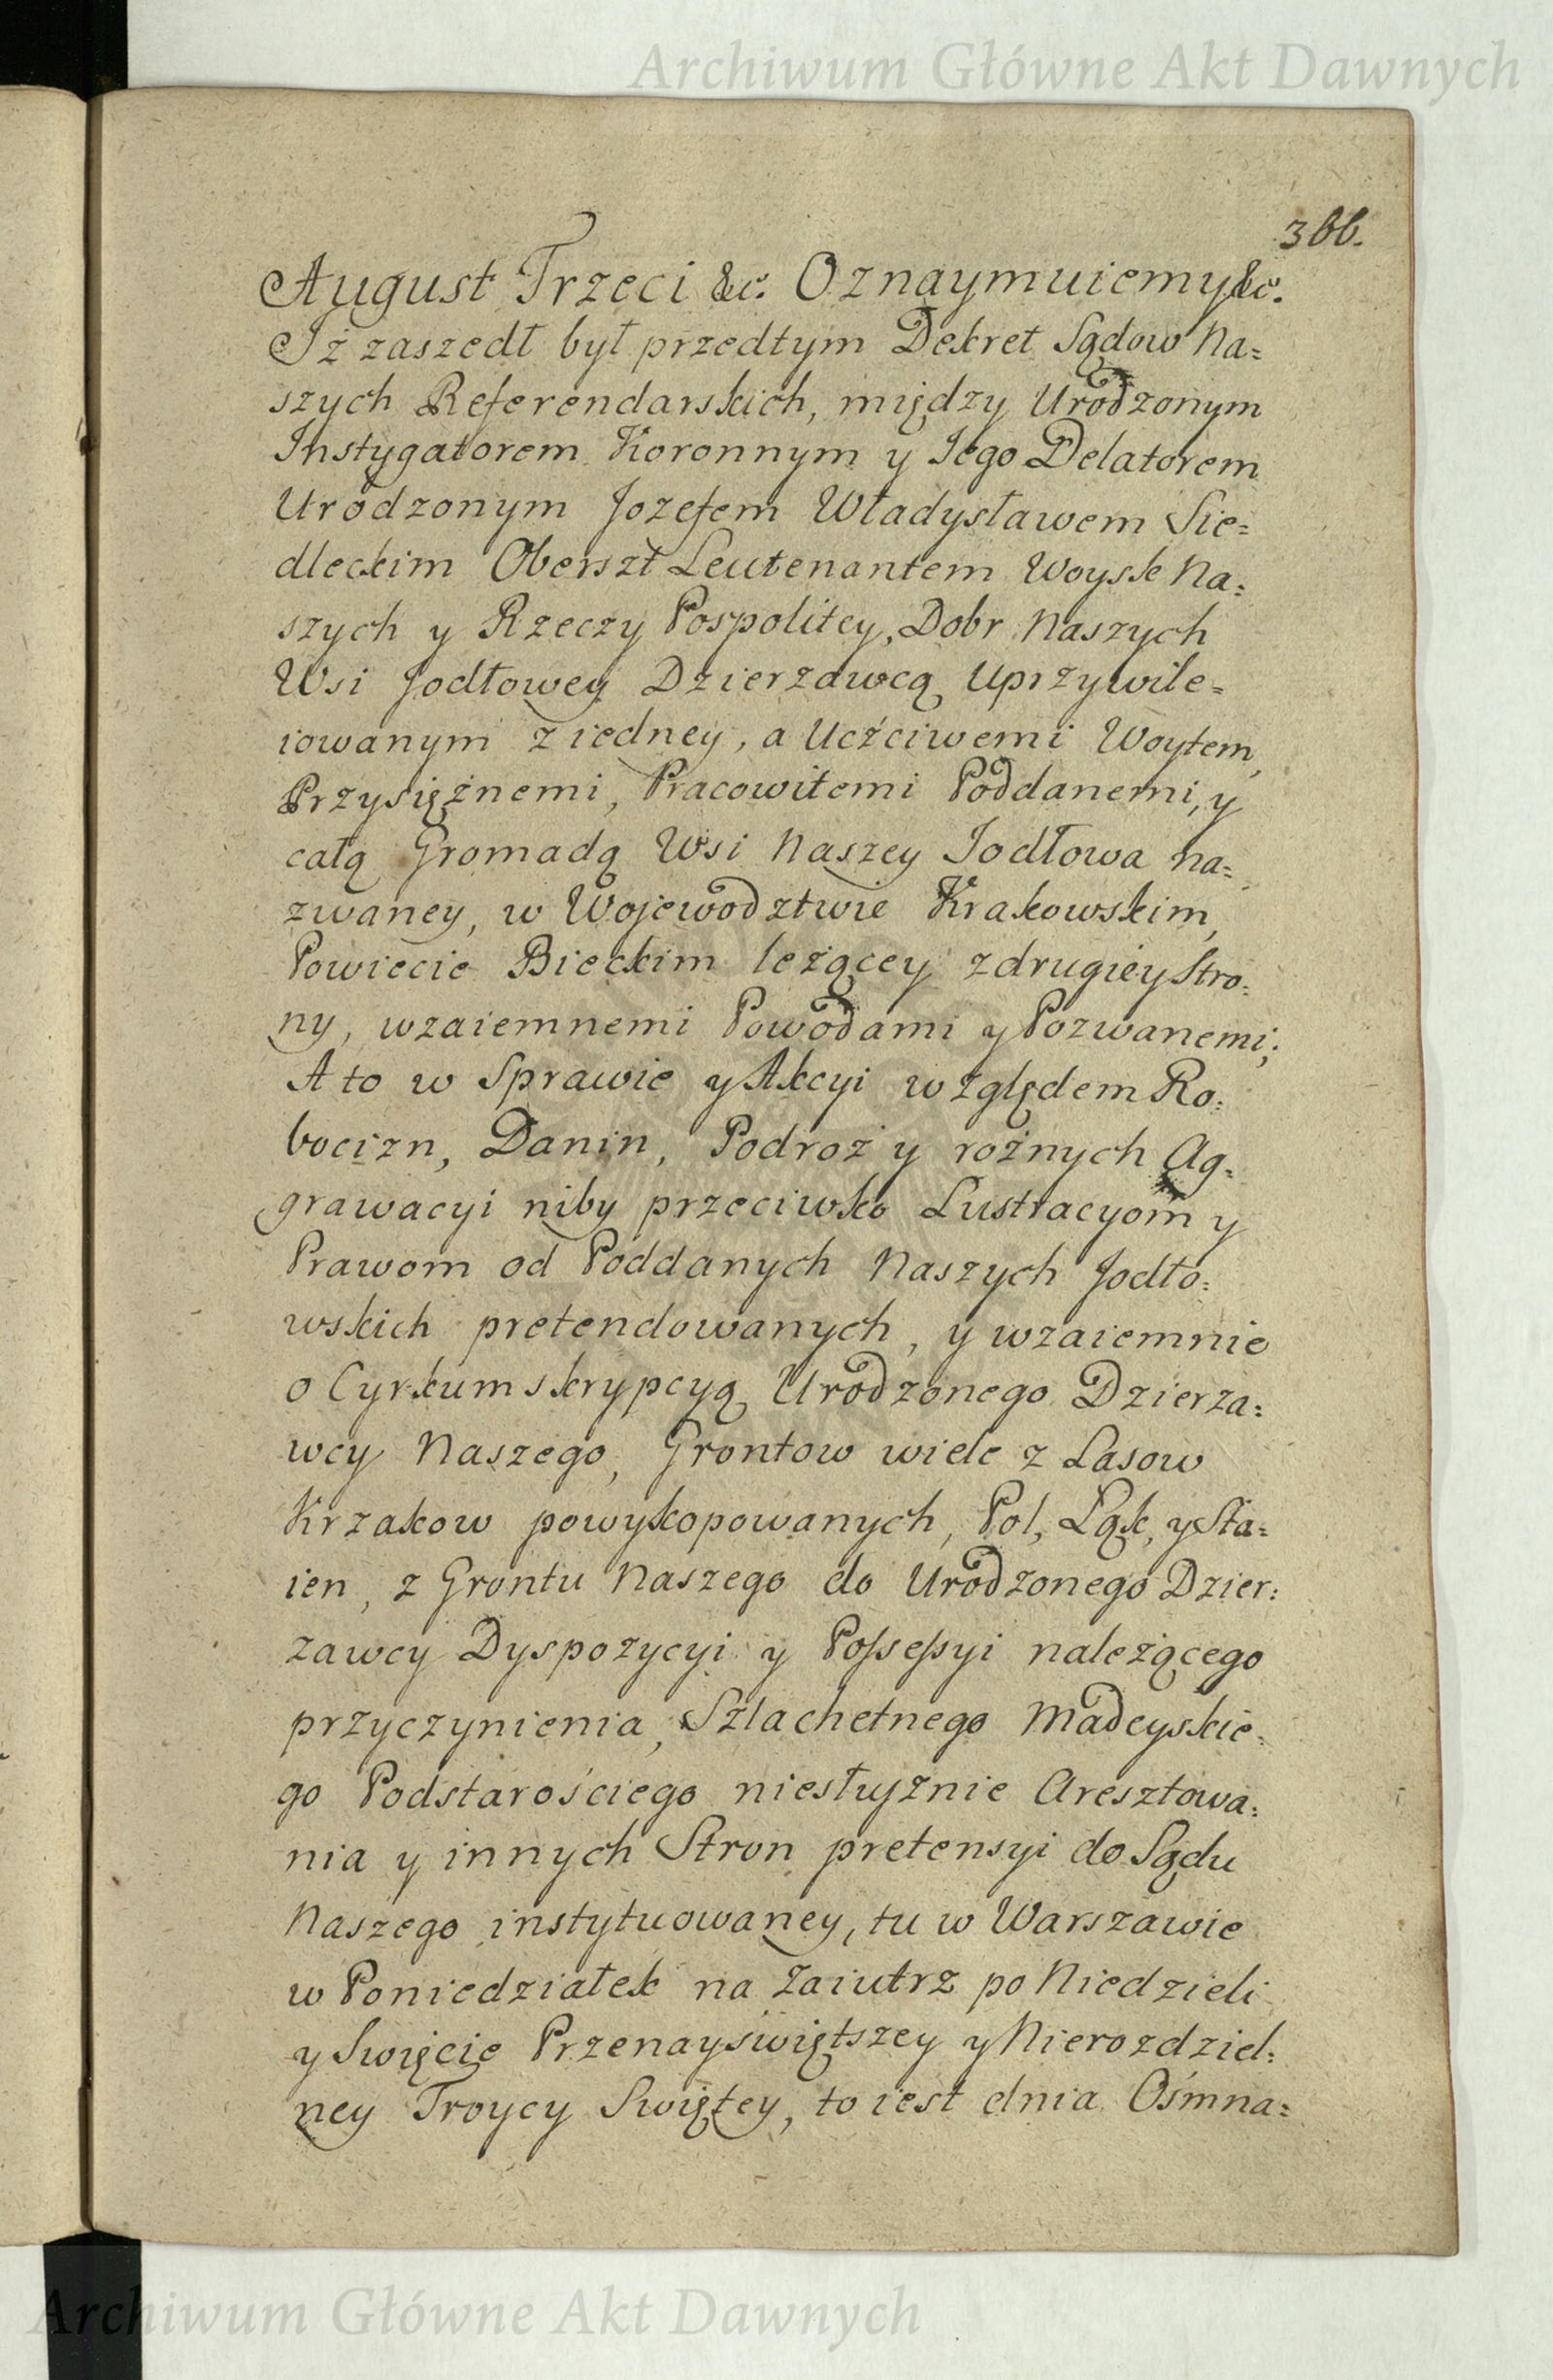 Archiwum Główne Akt Dawnych
366.
August Trzeci &c. Oznaymuiemy &c.
Iż zaszedł był przedtym Dekret Sądow Na=
szych Referendarskich, między Urodzonym
Instygatorem Koronnym y Iego Delatorem
Urodzonym Jozefem Władysławem Sie=
dleckim Oberszt Leutenantem Woysk Na=
szych y Rzeczy Pospolitey, Dobr Naszych
Wsi Jodłowey Dzierzawcą Uprzywile=
iowanym z iedney, a Uczciwemi Woytem,
Przysiężnemi, Pracowitemi Poddanemi, y
całą Gromadą Wsi Naszey Jodłowa na=
zwaney, w Wojewodztwie Krakowskim,
Powiecie Bieckim leżącey z drugiey Stro=
ny, wzaiemnemi Powodami y Pozwanemi;
A to w Sprawie y Akcyi względem Ro=
bocizn, Danin, Podroż y rożnych Ag=
grawacyi niby przeciwko Lustracyom y
Prawom od Poddanych Naszych Jodło=
wskich pretendowanych, y wzaiemnie
o Cyrkumskrypcyą Urodzonego Dzierza=
wcy Naszego, Grontow wiele z Lasow
Krzakow powykopowanych, Pol, Łąk, y Sta=
ien, z Grontu Naszego do Urodzonego Dzier=
zawcy Dyspozycyi y Possessyi należącego
przyczynienia, Szlachetnego Madeyskie=
go Podstarościego niesłużnie Aresztowa=
nia y innych Stron pretensyi do Sądu
Naszego instytuowaney, tu w Warszawie
w Poniedziałek na zaiutrz po Niedzieli
y Swięcie Przenayświętszey y Nierozdziel=
ney Troycy Swiętey, to iest dnia Ośmna=
Archiwum Główne Akt Dawnych